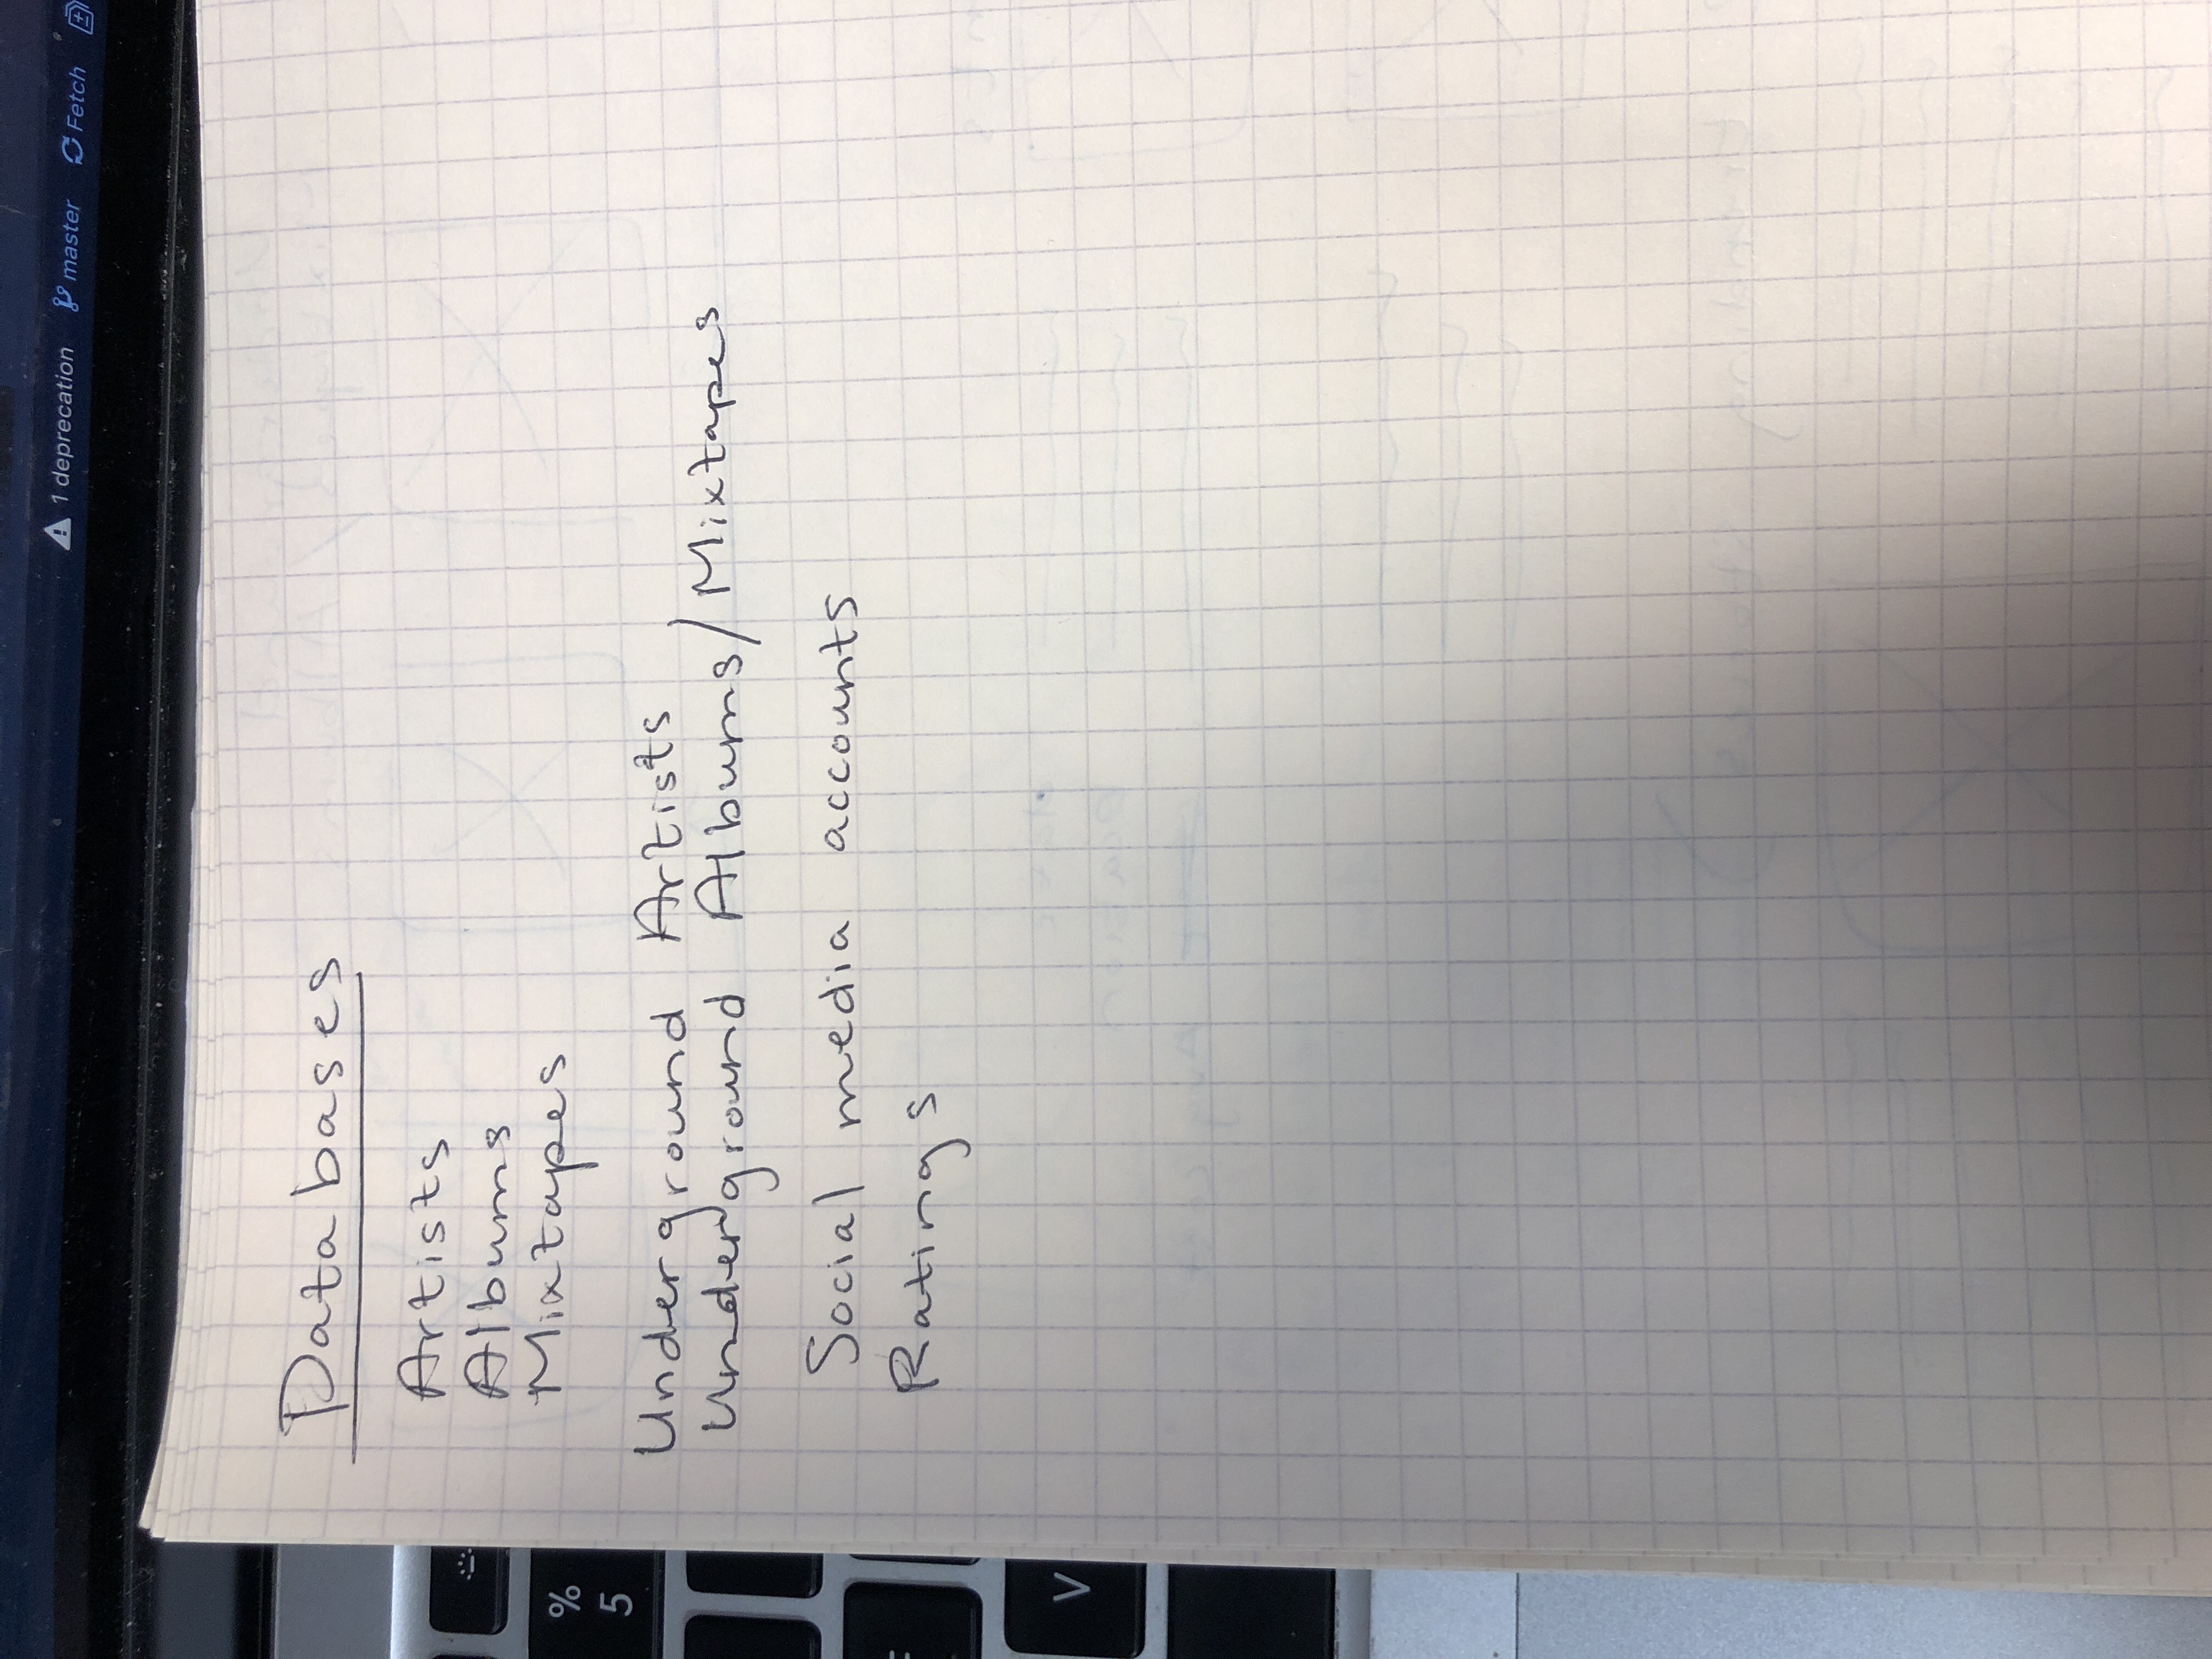 1 deprecation master Fetch
Databases
Artists
Albums
Mixtapes
%
5
Underground Artists
Underground Albums/Mixtapes
Social media accounts
Ratings
V